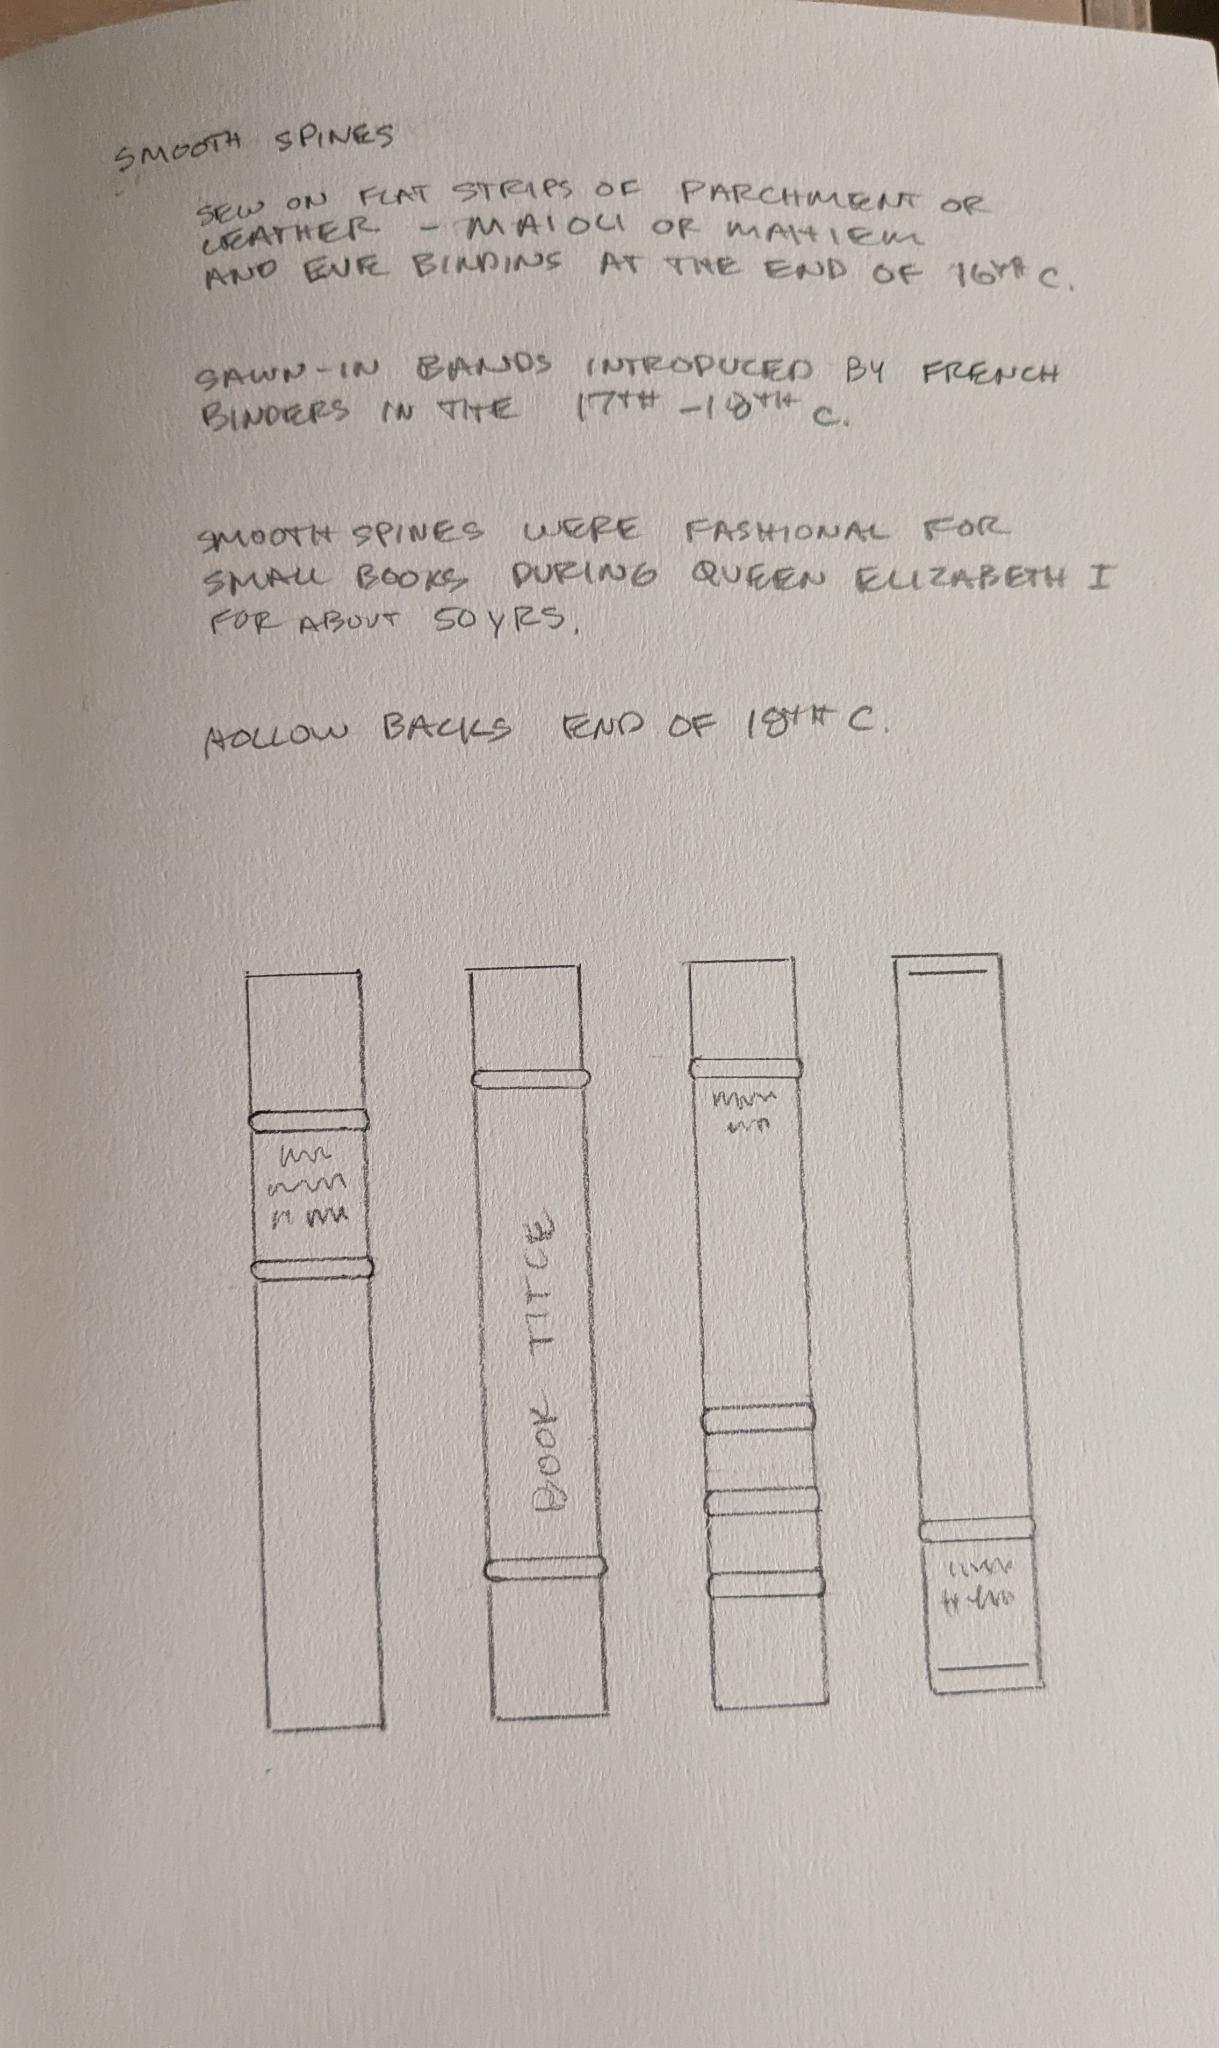 SMOOTH SPINES
SEW ON FLAT STRIPS OF PARCHMENT OR
LEATHER - MAIOLI OR MAHIEM
AND EVE BINDINS AT THE END OF 16TH C.
SAWN-IN BANDS INTRODUCED BY FRENCH
BINDERS IN THE 17TH-18TH C.
SMOOTH SPINES WERE FASHIONAL FOR
SMALL BOOKS DURING QUEEN ELIZABETH I
FOR ABOUT 50 YRS.
HOLLOW BACKS END OF 18TH C.
BOOK TITLE